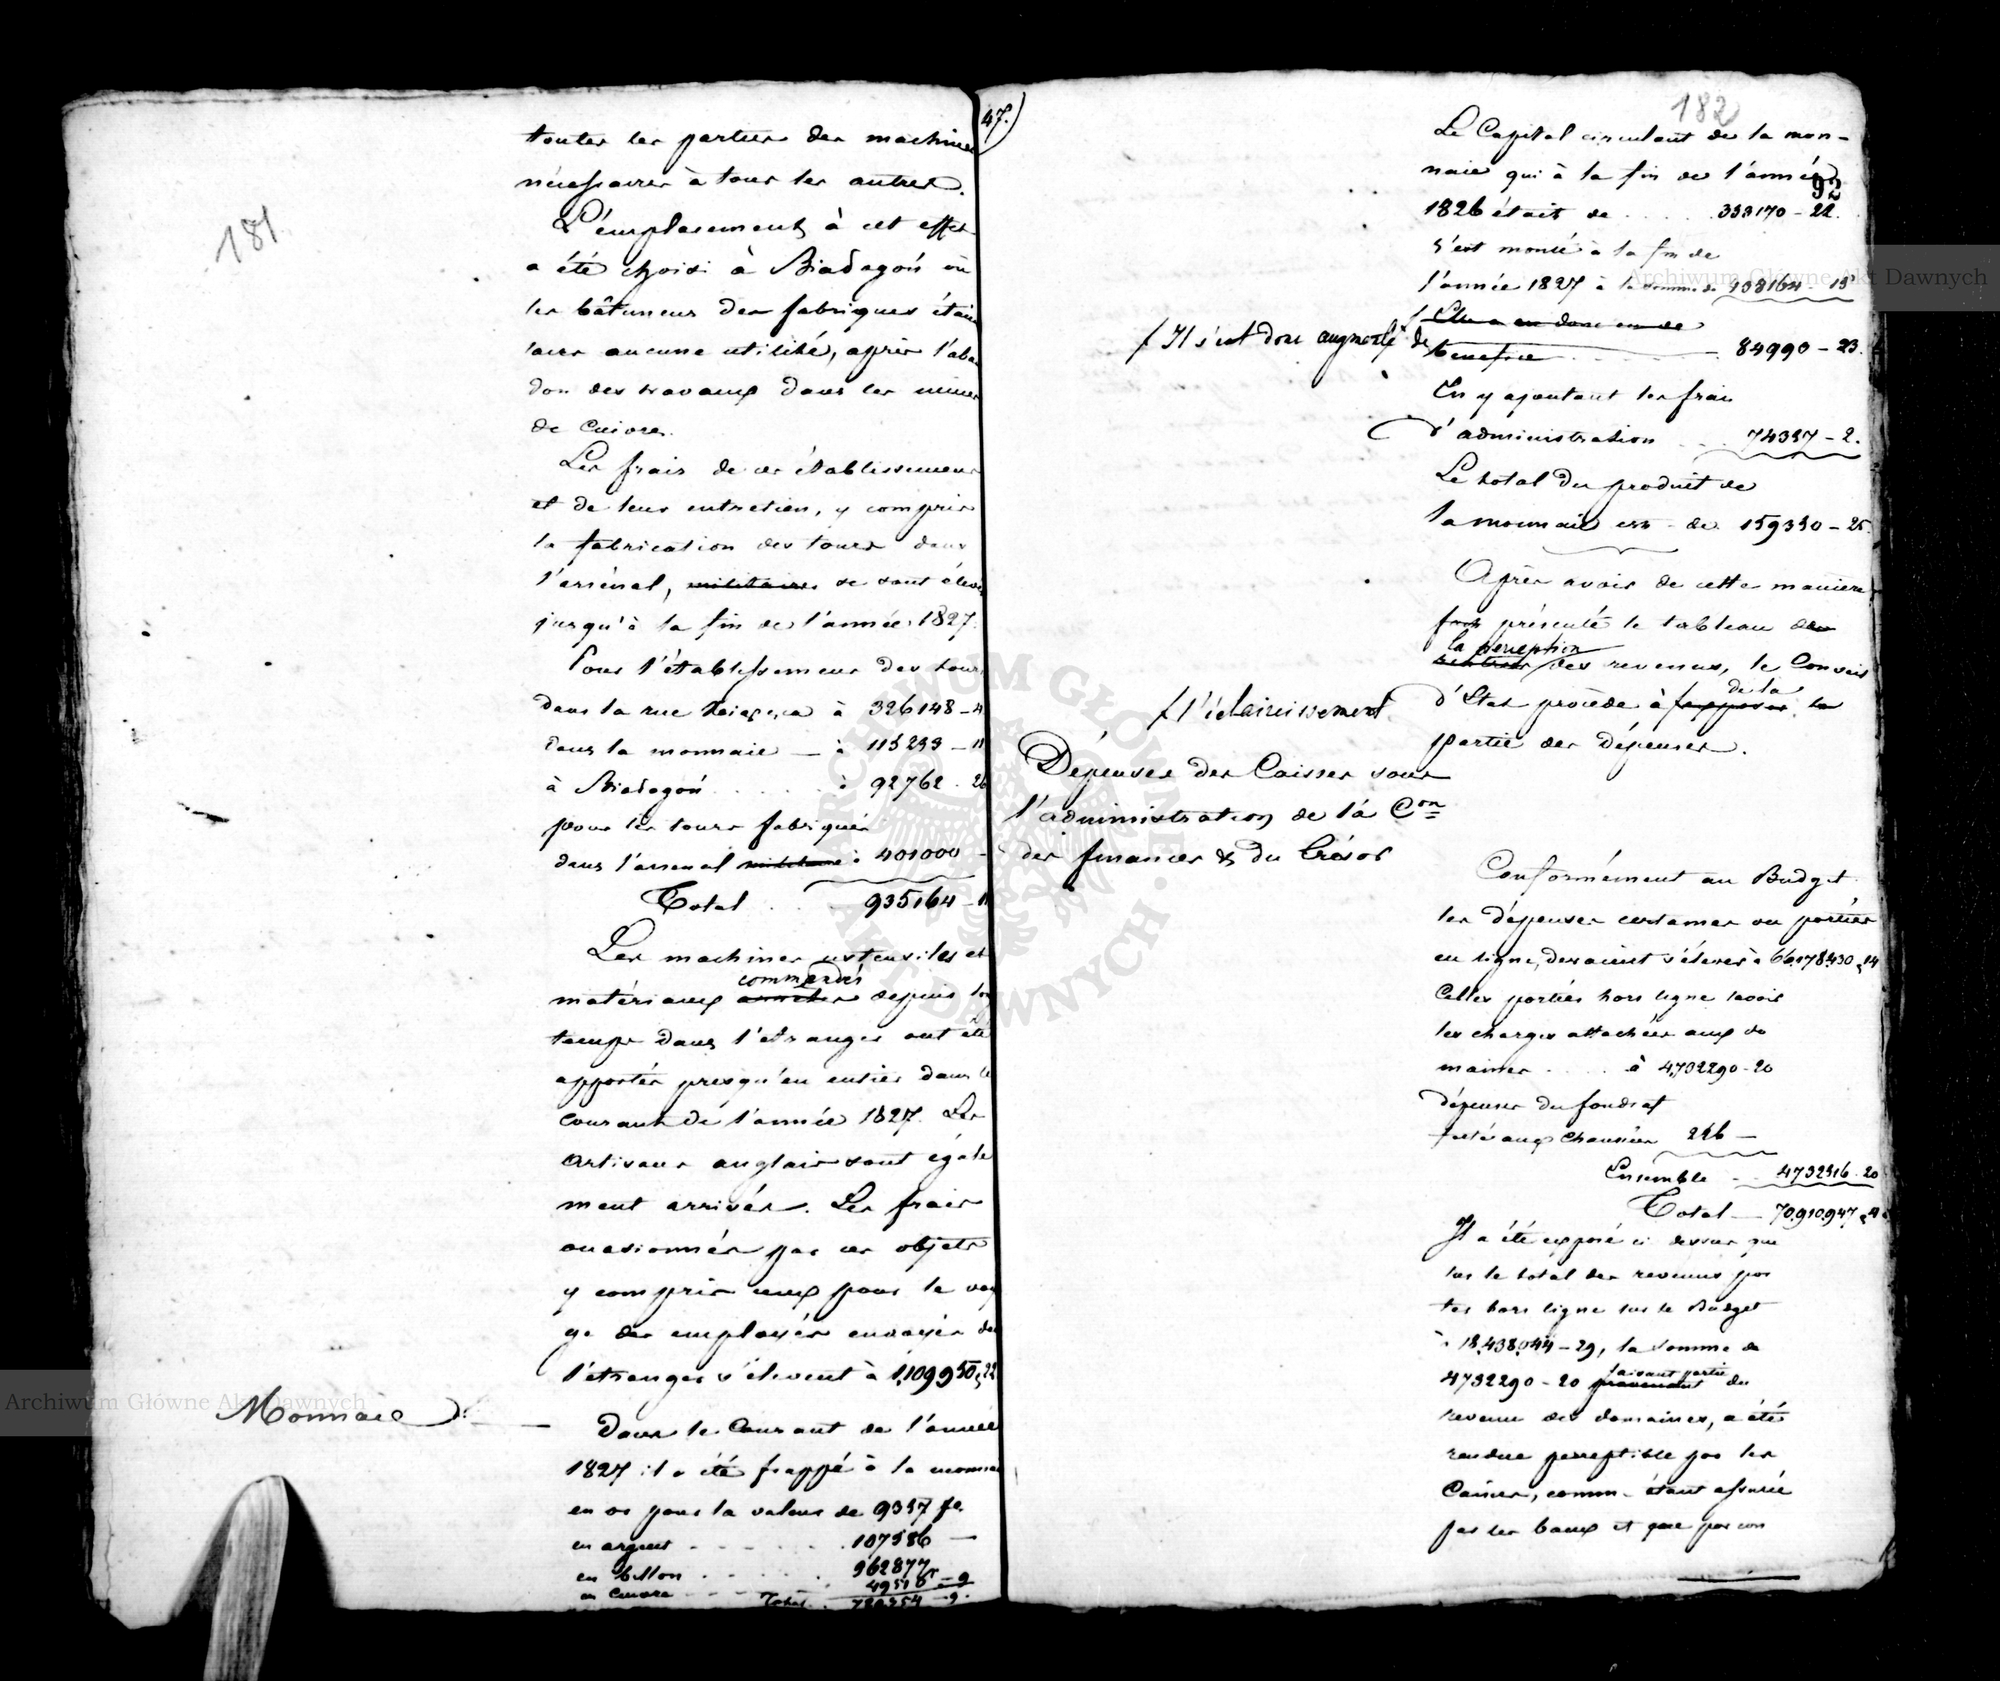 181
toutes les parties des machines
nécessaires à tous les autres.
L'emplacement à cet effet
a été choisi à Białogoń où
les bâtimens des fabriques étaient
sans aucune utilité, après l'aban
don des travaux dans les mines
de Cuivre.
Les frais de ces établissemens
et de leur entretien, y compris
la fabrication des tours dans
l'arsénal, militaire se sont élevés
jusqu'à la fin de l'année 1827.
Pour l'établissement des tours
dans la rue à 326148 - 4
dans la monnaie — à 115253 - 11
à Białogoń . . . . . à 92762 - 26
pour les tours fabriqués
dans l'arsenal militaire à 401000 -
Total . . 935164 - 11
Les machines ustensiles et
commandés
matériaux depuis long
temps dans l'étranger ont été
apportés presqu'en entier dans le
courant de l'année 1827. Les
artisans anglais sont égale
ment arrivés. Les frais
occasionnés par ces objets
y compris ceux pour le voya
ge des employés envoyés dans
l'étranger s'élevent à 1,109950, 22
Monnaie
Dans le Courant de l'année
1827 il a été frappé à la monnaie
en or pour la valeur de 9357 fl.
en argent - - - - . 107586 —
en billon . . . . . 562877
en cuivre - - - 49518 - 9
Total . 729354 - 9.
47.)
182
92
Le Capital circulant de la mon-
naie qui à la fin de l'année
1826 était de . . . . 353170 - 22.
s'est monté à la fin de
l'année 1827 à la somme de 438164 - 15
Elle a eu donc un de
/ Il s'est donc augmenté de
benefice . . . . . 84990 - 23.
En y ajoutant les frais
d'administration . . . 74357 - 2.
Le total du produit de
la monnaie est - de 159350 - 25.
Après avoir de cette maniere
présenté le tableau des
la perception
rentrées des revenus, le Conseil
de la
/ l'éclaircissement
d'Etat procède à la
partie des Dépenses.
Dépenses des Caisses sous
l'administration de la Con
des finances & du Trésor
Conformément au Budget
les dépenses certaines ou portées
en ligne, devaient s'élever à 66,178,430, 14
Celles portées hors ligne savoir
les charges attachées aux do
maines . . . . à 4,732290 - 20
dépenses du fonds af
fecté aux Chaussées 226 —
Ensemble - - 4732516 - 20
Total — 70,910,947, 4
Il a été exposé ci dessus que
sur le total des revenus por
tés hors ligne sur le Budget
à 18,438,044 - 29, la somme de
faisant partie
4732290 - 20 provenant du
revenu des domaines, a été
rendue perceptible par les
Caisses, comme étant assurée
par les baux et que par con
Archiwum Główne Akt Dawnych
Archiwum Główne Akt Dawnych
ARCHIWUM GŁÓWNE AKT DAWNYCH